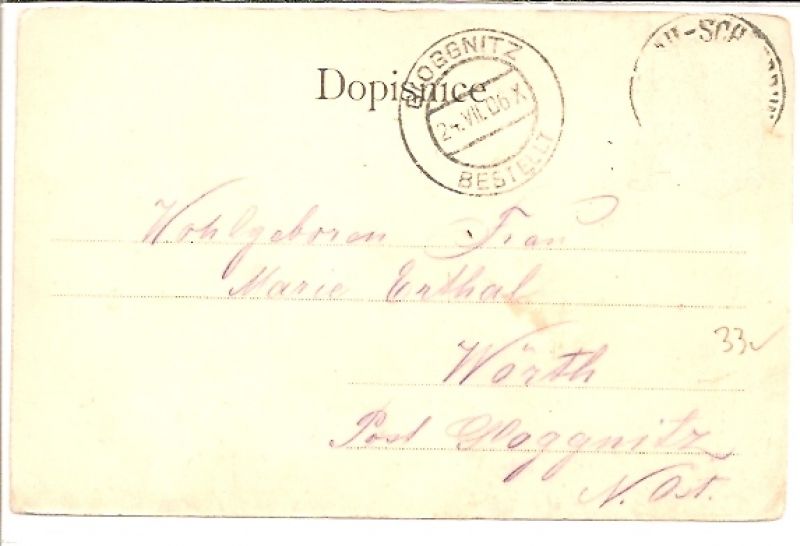 Dopisnice
GLOGGNITZ
24.VII.06·X
BESTELLT
Wohlgeboren Frau
Marie Erthal
Wörth
Post Gloggnitz
N. Öst.
33